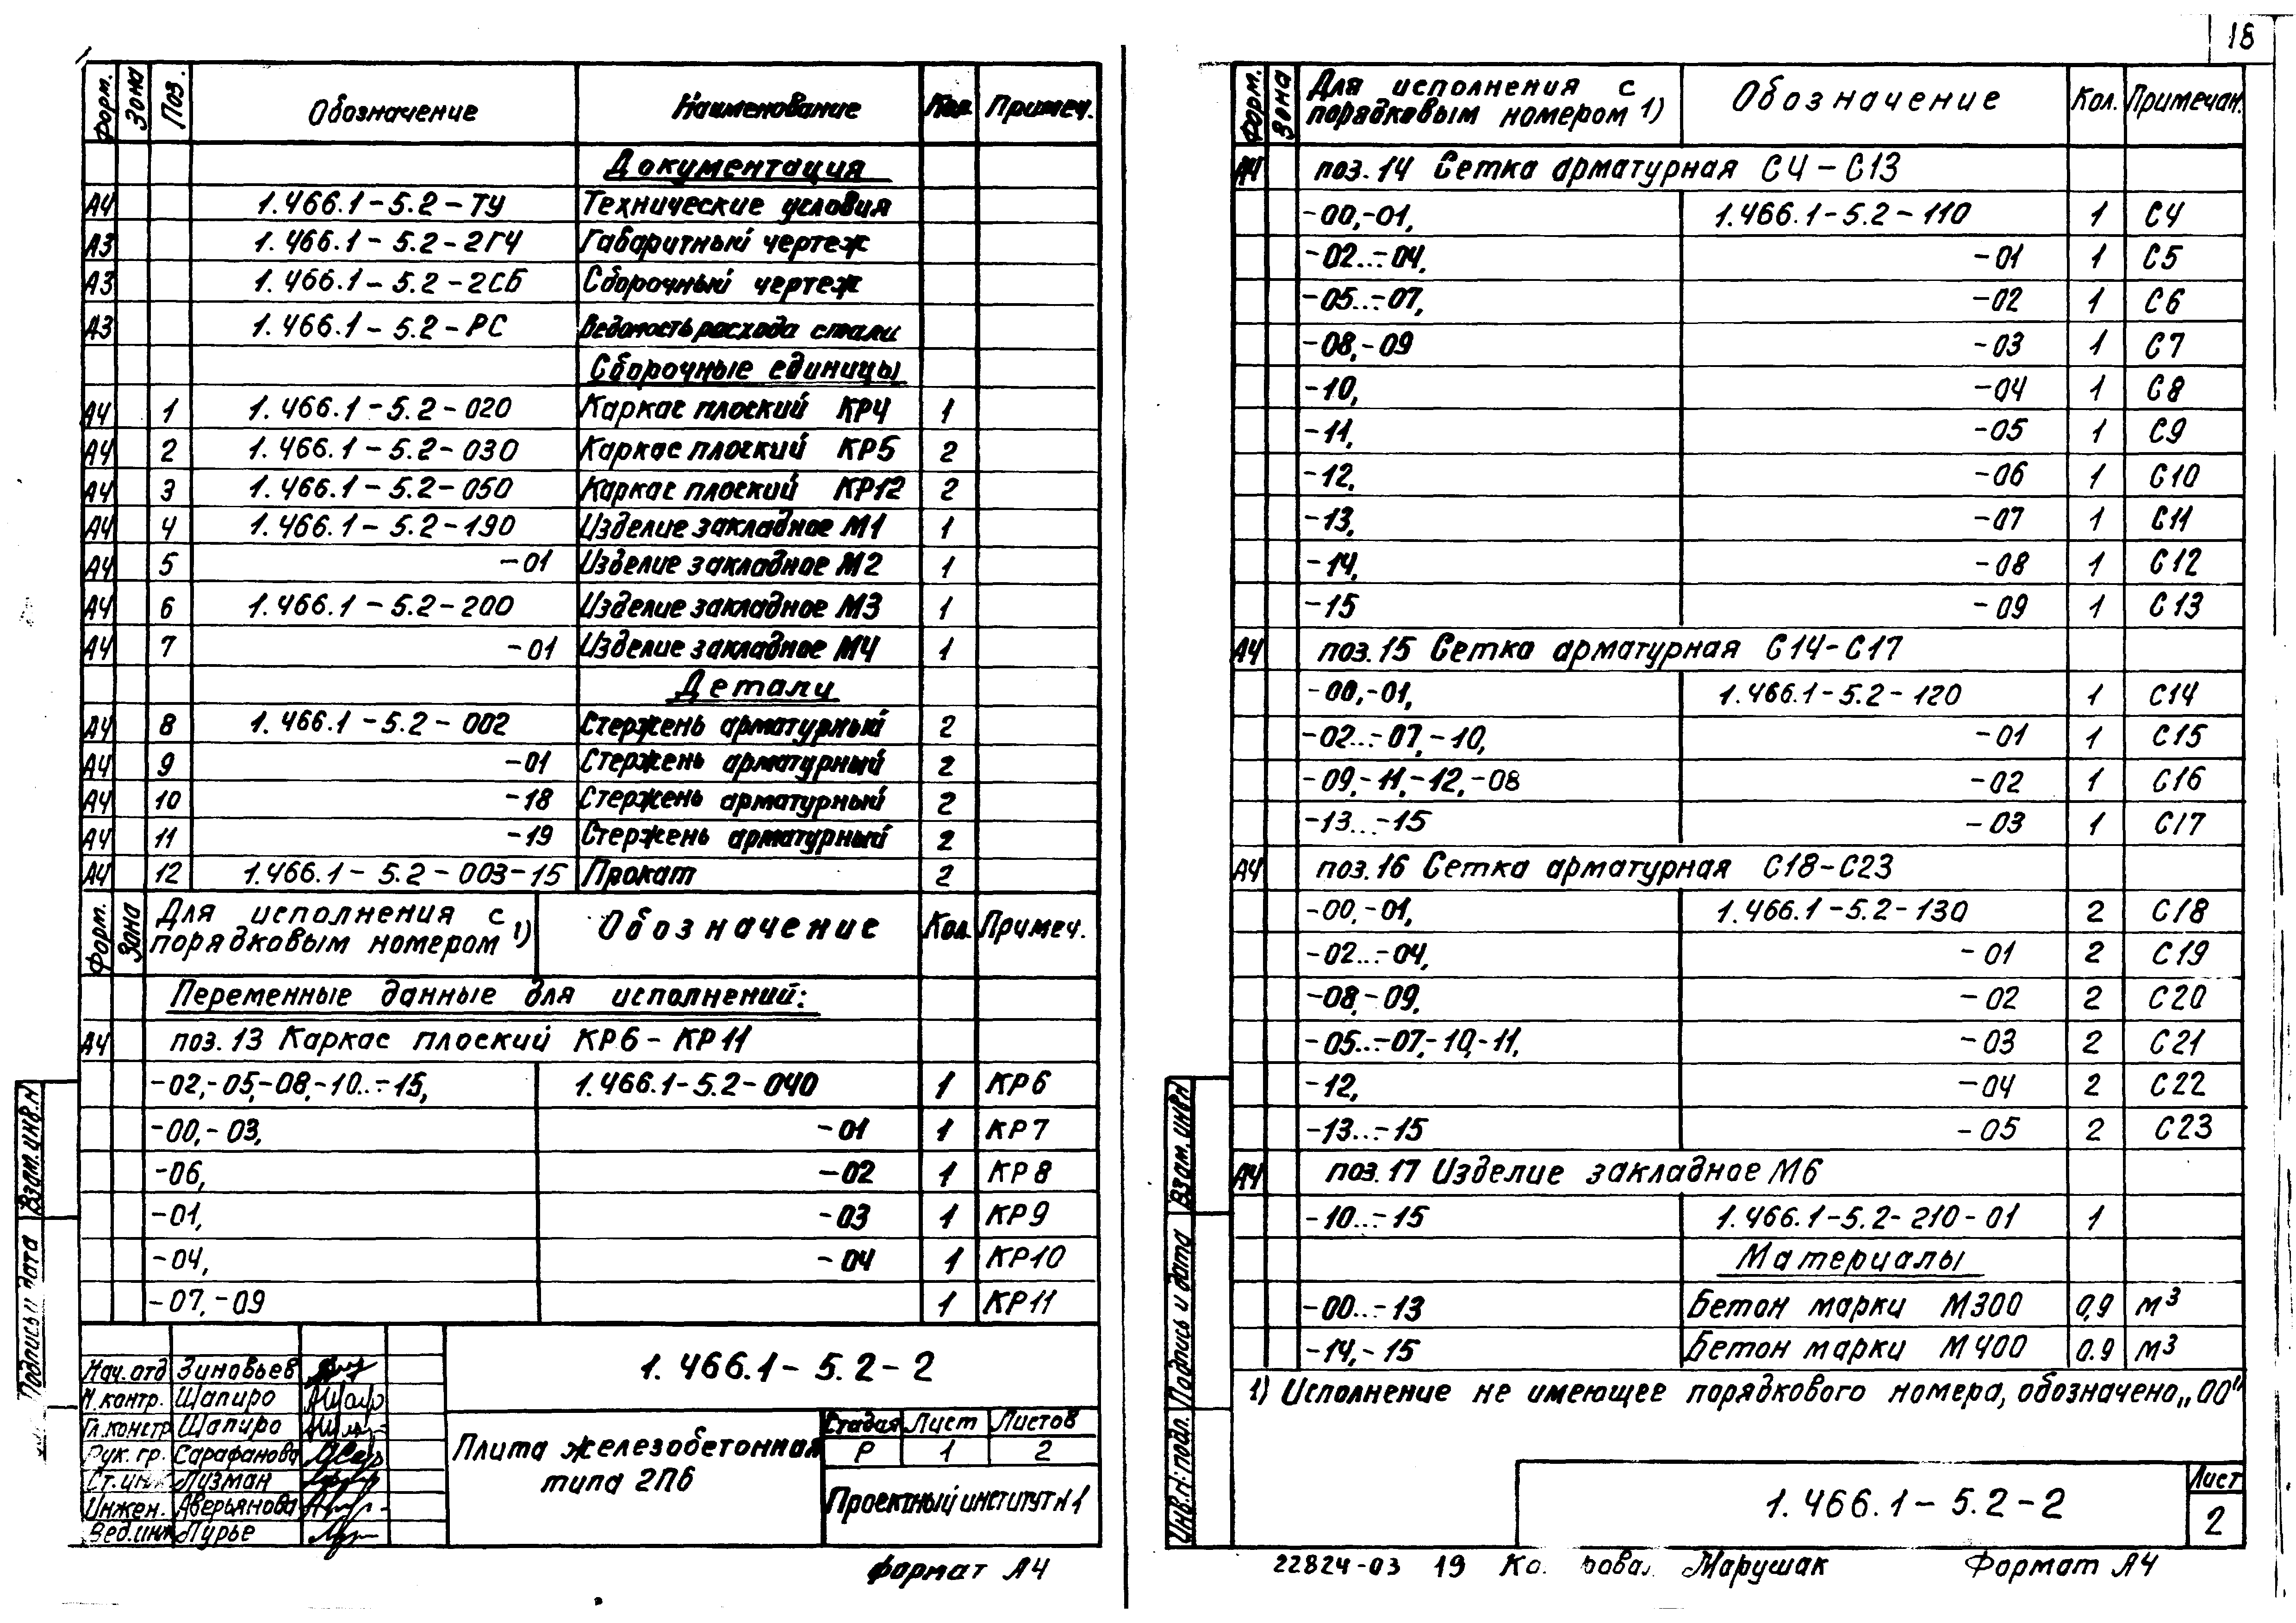 18
Форм. Зона Поз. Обозначение Наименование Кол. Примеч.
Документация
А4 1.466.1-5.2-ТУ Технические условия
А3 1.466.1-5.2-2ГЧ Габаритный чертеж
А3 1.466.1-5.2-2СБ Сборочный чертеж
А3 1.466.1-5.2-РС Ведомость расхода стали
Сборочные единицы
А4 1 1.466.1-5.2-020 Каркас плоский КР4 1
А4 2 1.466.1-5.2-030 Каркас плоский КР5 2
А4 3 1.466.1-5.2-050 Каркас плоский КР12 2
А4 4 1.466.1-5.2-190 Изделие закладное М1 1
А4 5 -01 Изделие закладное М2 1
А4 6 1.466.1-5.2-200 Изделие закладное М3 1
А4 7 -01 Изделие закладное М4 1
Детали
А4 8 1.466.1-5.2-002 Стержень арматурный 2
А4 9 -01 Стержень арматурный 2
А4 10 -18 Стержень арматурный 2
А4 11 -19 Стержень арматурный 2
А4 12 1.466.1-5.2-003-15 Прокат 2
Форм. Зона Для исполнения с порядковым номером 1) Обозначение Кол. Примеч.
Переменные данные для исполнений:
А4 поз. 13 Каркас плоский КР6-КР11
-02,-05,-08,-10...-15, 1.466.1-5.2-040 1 КР6
-00,-03, -01 1 КР7
-06, -02 1 КР8
-01, -03 1 КР9
-04, -04 1 КР10
-07,-09 1 КР11
Нач. отд Зиновьев
Н. контр. Шапиро
Гл. констр Шапиро
Рук. гр. Сарафанова
Ст. инж Лузман
Инжен. Аверьянова
Вед. инж Лурье
1.466.1-5.2-2
Плита железобетонная
типа 2П6
Стадия Лист Листов
Р 1 2
Проектный институт N1
Формат А4
Взам. инв. N
Подпись и дата
Форм. Зона Для исполнения с порядковым номером 1) Обозначение Кол. Примечан.
А4 поз. 14 Сетка арматурная С4-С13
-00,-01, 1.466.1-5.2-110 1 С4
-02...-04, -01 1 С5
-05...-07, -02 1 С6
-08,-09 -03 1 С7
-10, -04 1 С8
-11, -05 1 С9
-12, -06 1 С10
-13, -07 1 С11
-14, -08 1 С12
-15 -09 1 С13
А4 поз. 15 Сетка арматурная С14-С17
-00,-01, 1.466.1-5.2-120 1 С14
-02...-07,-10, -01 1 С15
-09,-11,-12,-08 -02 1 С16
-13...-15 -03 1 С17
А4 поз. 16 Сетка арматурная С18-С23
-00,-01, 1.466.1-5.2-130 2 С18
-02...-04, -01 2 С19
-08,-09, -02 2 С20
-05...-07,-10,-11, -03 2 С21
-12, -04 2 С22
-13...-15 -05 2 С23
А4 поз. 17 Изделие закладное М6
-10...-15 1.466.1-5.2-210-01 1
Материалы
-00...-13 Бетон марки М300 0,9 м³
-14,-15 Бетон марки М400 0.9 м³
1) Исполнение не имеющее порядкового номера, обозначено „00"
1.466.1-5.2-2
Лист
2
Взам. инв. N
Подпись и дата
Инв. N: подл.
22824-03 19 Марушак Формат А4